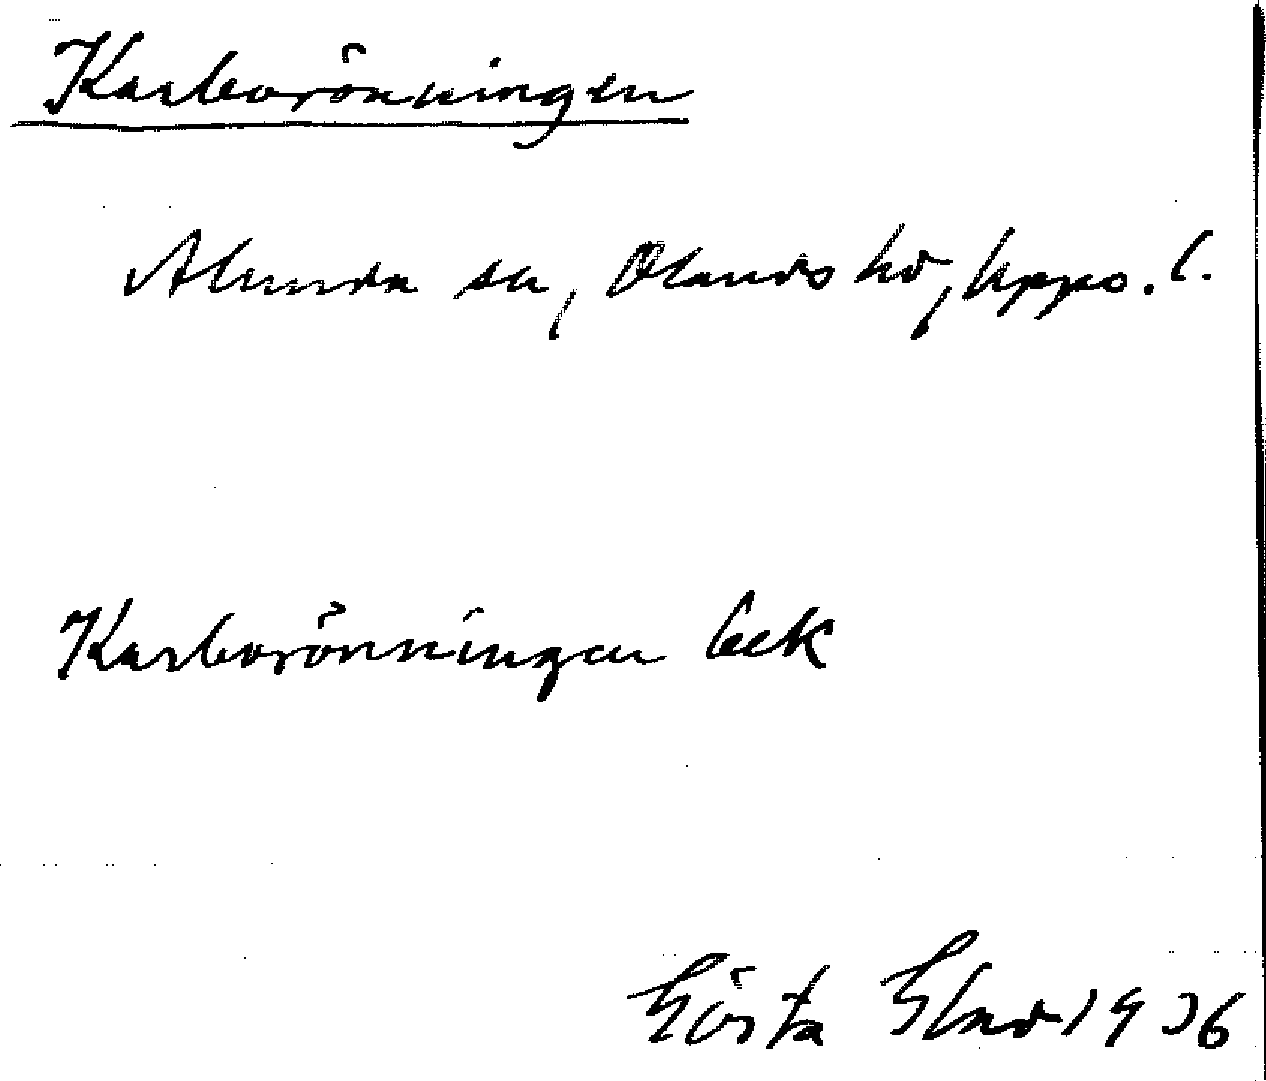 Karborönningen
Alunda sn, Olands hd, Upps. l.
Karborönningen beck
Gösta Elmd 1936